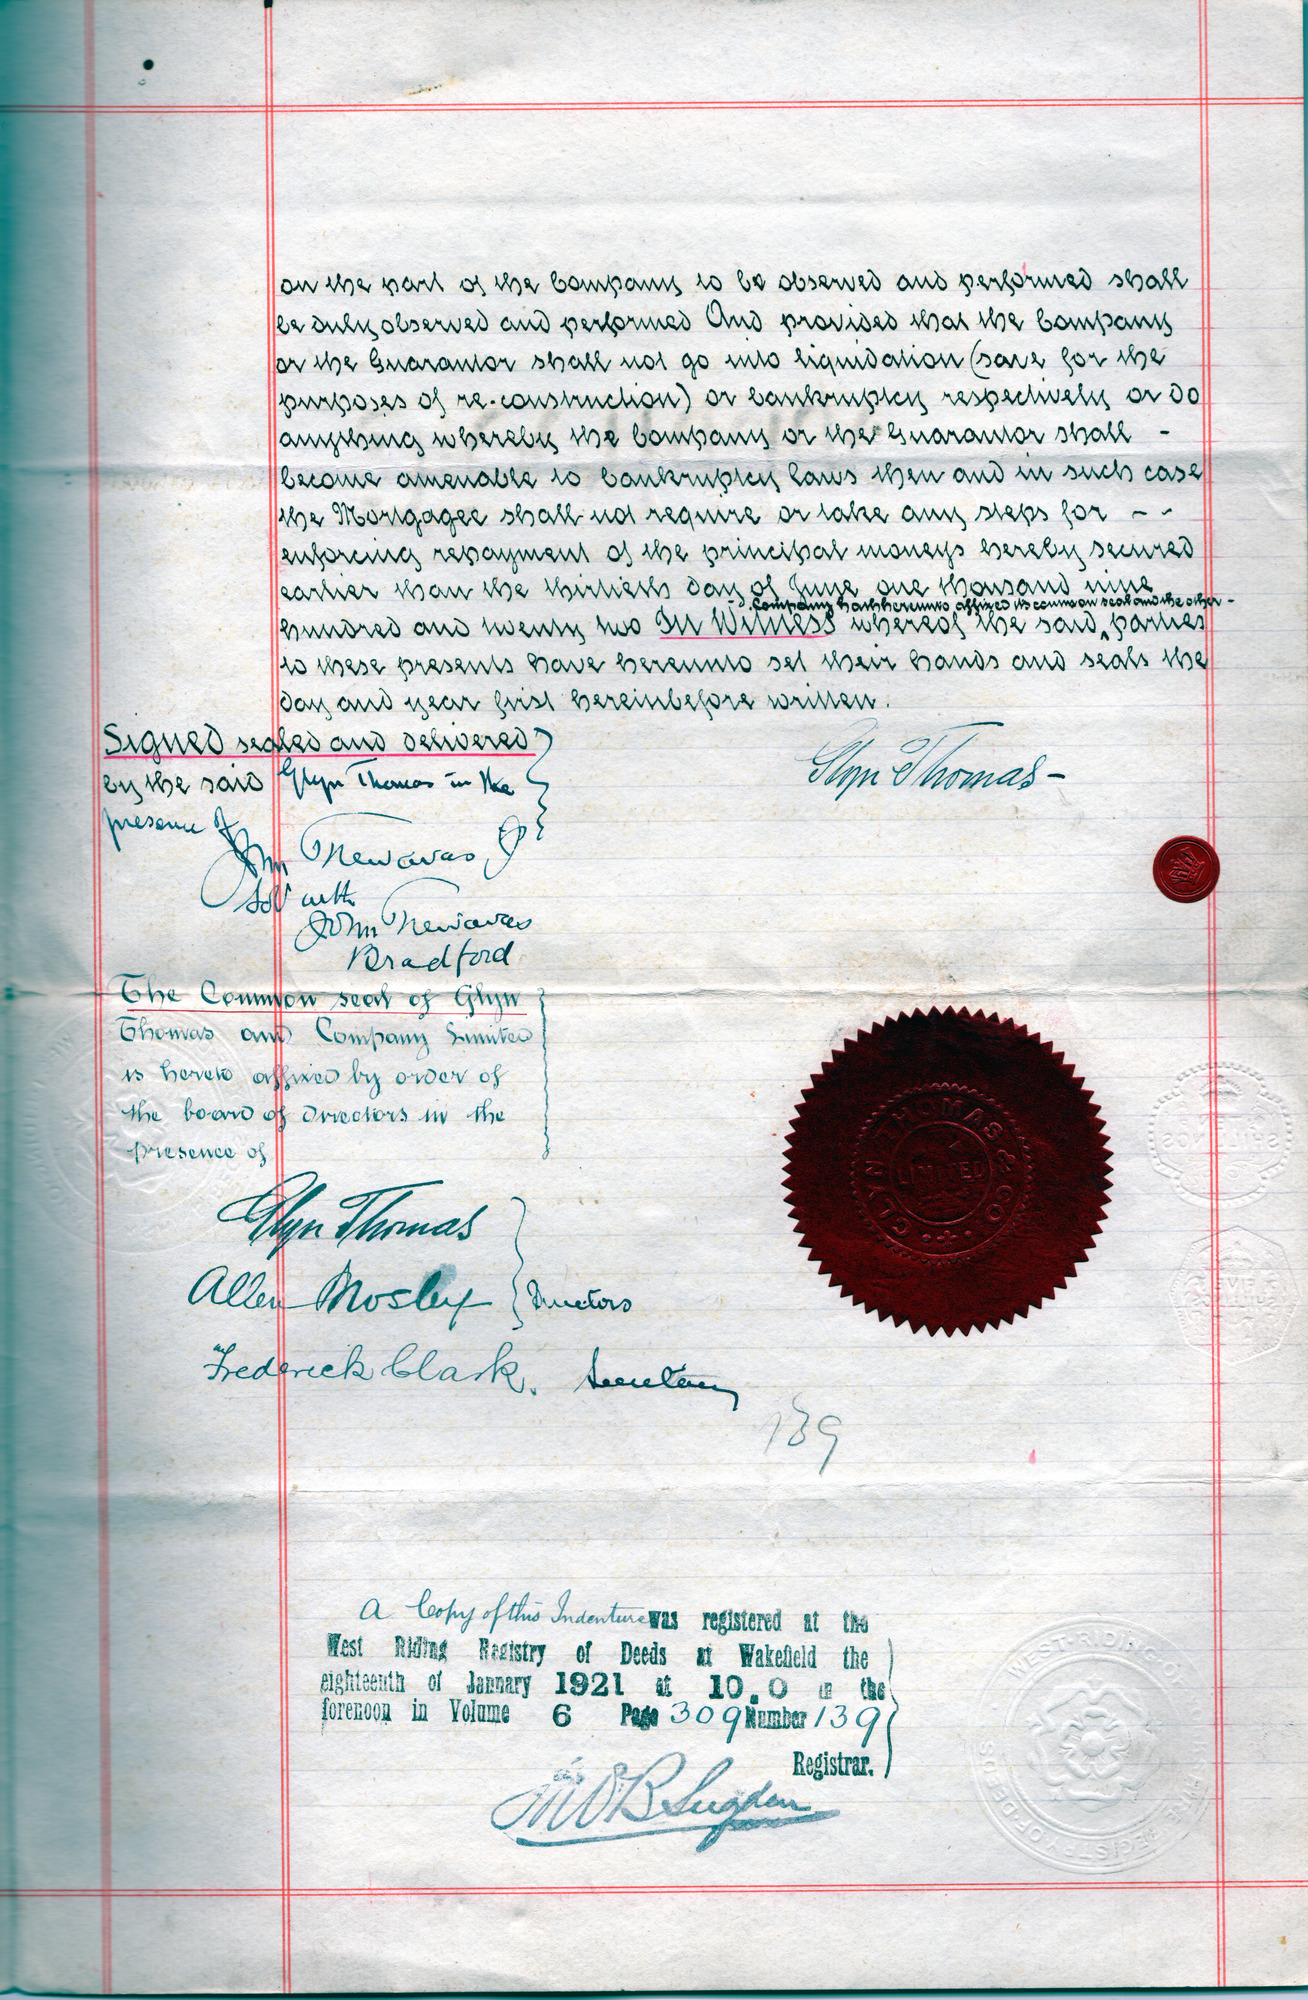 on the part of the Company to be observed and performed shall
be duly observed and performed And provided that the Company
or the Guarantor shall not go into liquidation (save for the
purposes of re-construction) or bankruptcy respectively or do
anything whereby the Company or the Guarantor shall -
become amenable to bankruptcy laws then and in such case
the Mortgagee shall not require or take any steps for - -
enforcing repayment of the principal moneys hereby secured
earlier than the thirtieth day of June one thousand nine
Company hath hereunto affixed its common seal and the other -
hundred and twenty two In Witness whereof the said parties
to these presents have hereunto set their hands and seals the
day and year first hereinbefore written.
Signed sealed and delivered
by the said Glyn Thomas in the
presence of
Glyn Thomas -
John
with
John
Bradford
The Common seal of Glyn
Thomas and Company Limited
is hereto affixed by order of
the board of Directors in the
presence of
GLYN THOMAS & CO.
LIMITED
Glyn Thomas
Allen Mosley Directors
Frederick Clark. Secretary
139
A Copy of this Indenture was registered at the
West Riding Registry of Deeds at Wakefield the
eighteenth of January 1921 at 10.0 in the
forenoon in Volume 6 Page 309 Number 139
Registrar.
Sugden
WEST RIDING OF
REGISTRY OF DEEDS